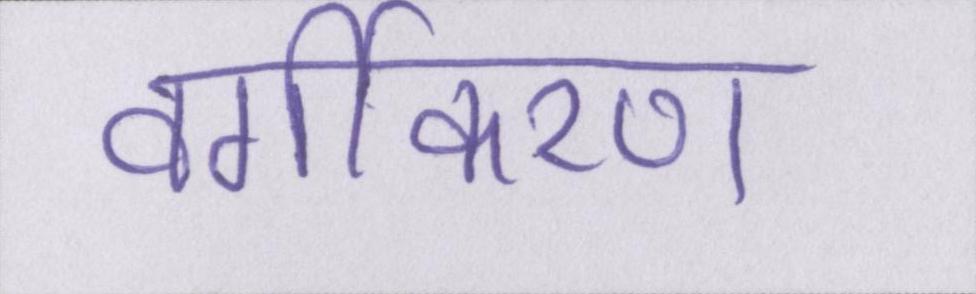 वर्गीकरण